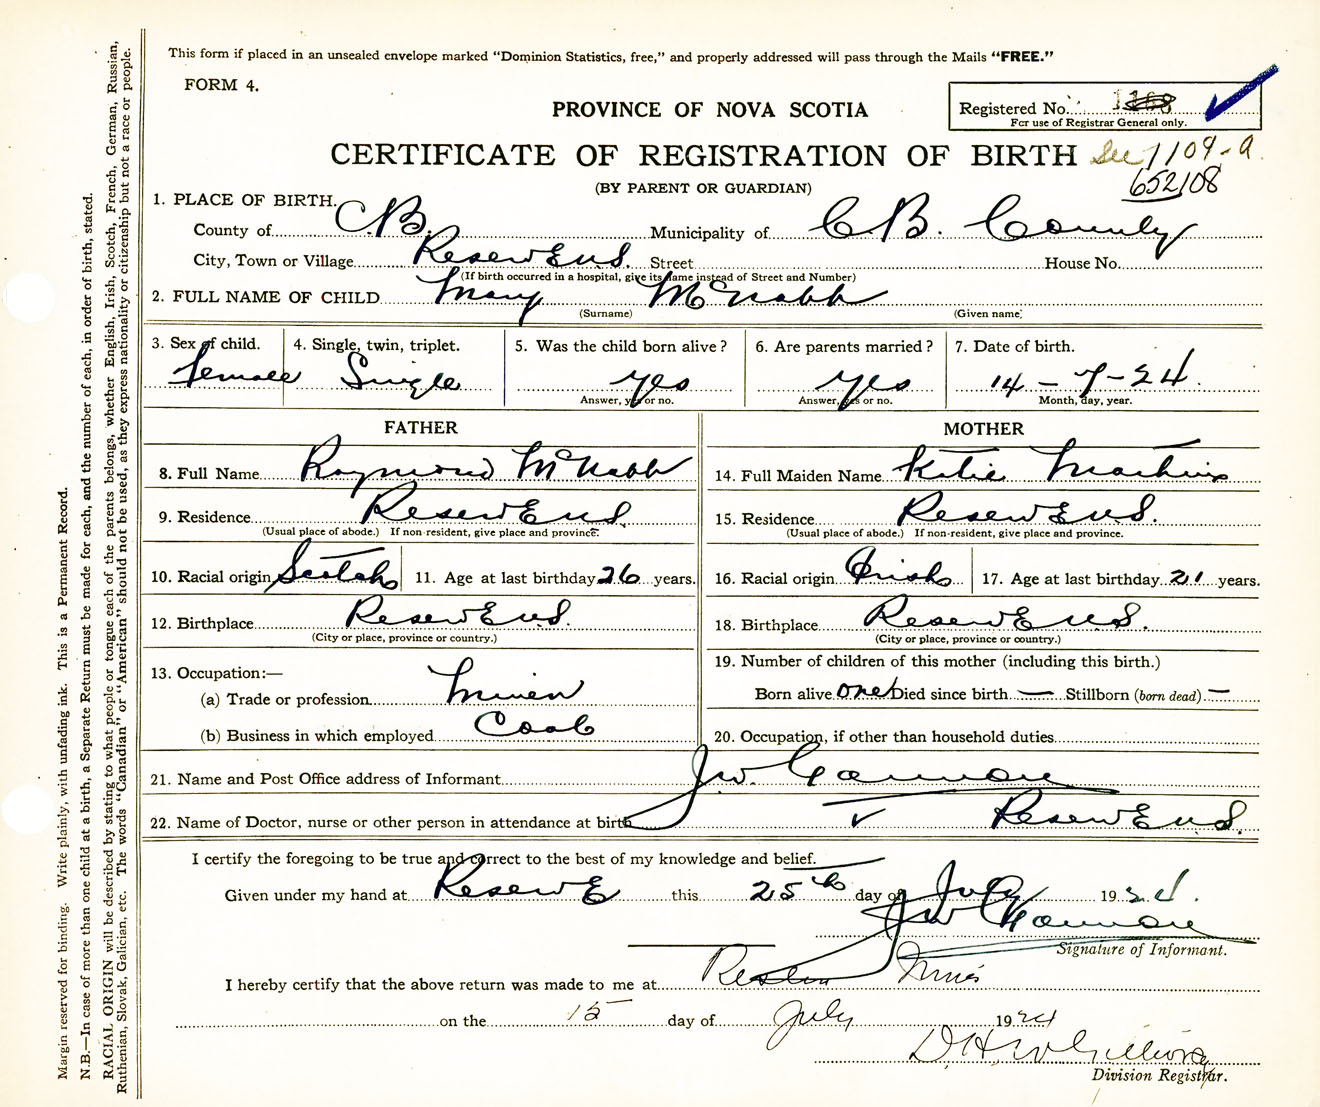 This form if placed in an unsealed envelope marked "Dominion Statistics, free," and properly addressed will pass through the Mails "FREE."
FORM 4.
PROVINCE OF NOVA SCOTIA
Registered No.
For use of Registrar General only.
CERTIFICATE OF REGISTRATION OF BIRTH See 1109-a
(BY PARENT OR GUARDIAN) 652108
1. PLACE OF BIRTH.
County of C.B. Municipality of C.B. County
City, Town or Village Reserve Street House No.
(If birth occurred in a hospital, give its name instead of Street and Number)
2. FULL NAME OF CHILD Mary McNabb
(Surname) (Given name)
3. Sex of child. 4. Single, twin, triplet. 5. Was the child born alive? 6. Are parents married? 7. Date of birth.
female Single yes yes 14-7-24.
Answer, yes or no. Answer, yes or no. Month, day, year.
FATHER
8. Full Name Raymond McNabb
9. Residence Reserve
(Usual place of abode.) If non-resident, give place and province.
10. Racial origin Scotch 11. Age at last birthday 26 years.
12. Birthplace Reserve
(City or place, province or country.)
13. Occupation:—
(a) Trade or profession Miner
(b) Business in which employed Coal
MOTHER
14. Full Maiden Name Katie
15. Residence Reserve
(Usual place of abode.) If non-resident, give place and province.
16. Racial origin Irish 17. Age at last birthday 21 years.
18. Birthplace Reserve
(City or place, province or country.)
19. Number of children of this mother (including this birth.)
Born alive one Died since birth — Stillborn (born dead) —
20. Occupation, if other than household duties
21. Name and Post Office address of Informant J.W.
22. Name of Doctor, nurse or other person in attendance at birth Reserve
I certify the foregoing to be true and correct to the best of my knowledge and belief.
Given under my hand at Reserve this 25th day of July 1924.
J W
Signature of Informant.
I hereby certify that the above return was made to me at Reserve Mines
on the 15 day of July 1924
D. H.
Division Registrar.
Margin reserved for binding. Write plainly, with unfading ink. This is a Permanent Record.
N.B.—In case of more than one child at a birth, a Separate Return must be made for each, and the number of each, in order of birth, stated.
RACIAL ORIGIN will be described by stating to what people or tongue each of the parents belongs, whether English, Irish, Scotch, French, German, Russian,
Ruthenian, Slovak, Galician, etc. The words "Canadian" or "American" should not be used, as they express nationality or citizenship but not a race or people.